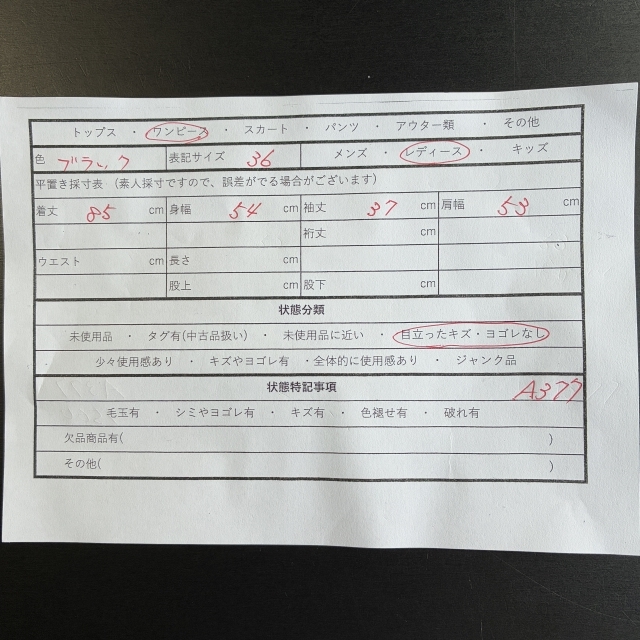 トップス ・ ワンピース ・ スカート ・ パンツ ・ アウター類 ・ その他
色 ブラック 表記サイズ 36 メンズ ・ レディース ・ キッズ
平置き採寸表 (素人採寸ですので、誤差がでる場合がございます)
着丈 85 cm 身幅 54 cm 袖丈 37 cm 肩幅 53 cm
裄丈 cm
ウエスト cm 長さ cm
股上 cm 股下 cm
状態分類
未使用品 ・ タグ有(中古品扱い) ・ 未使用品に近い ・ 目立ったキズ・ヨゴレなし
少々使用感あり ・ キズやヨゴレ有 ・全体的に使用感あり ・ ジャンク品
状態特記事項 A377
毛玉有 ・ シミやヨゴレ有 ・ キズ有 ・ 色褪せ有 ・ 破れ有
欠品商品有( )
その他( )